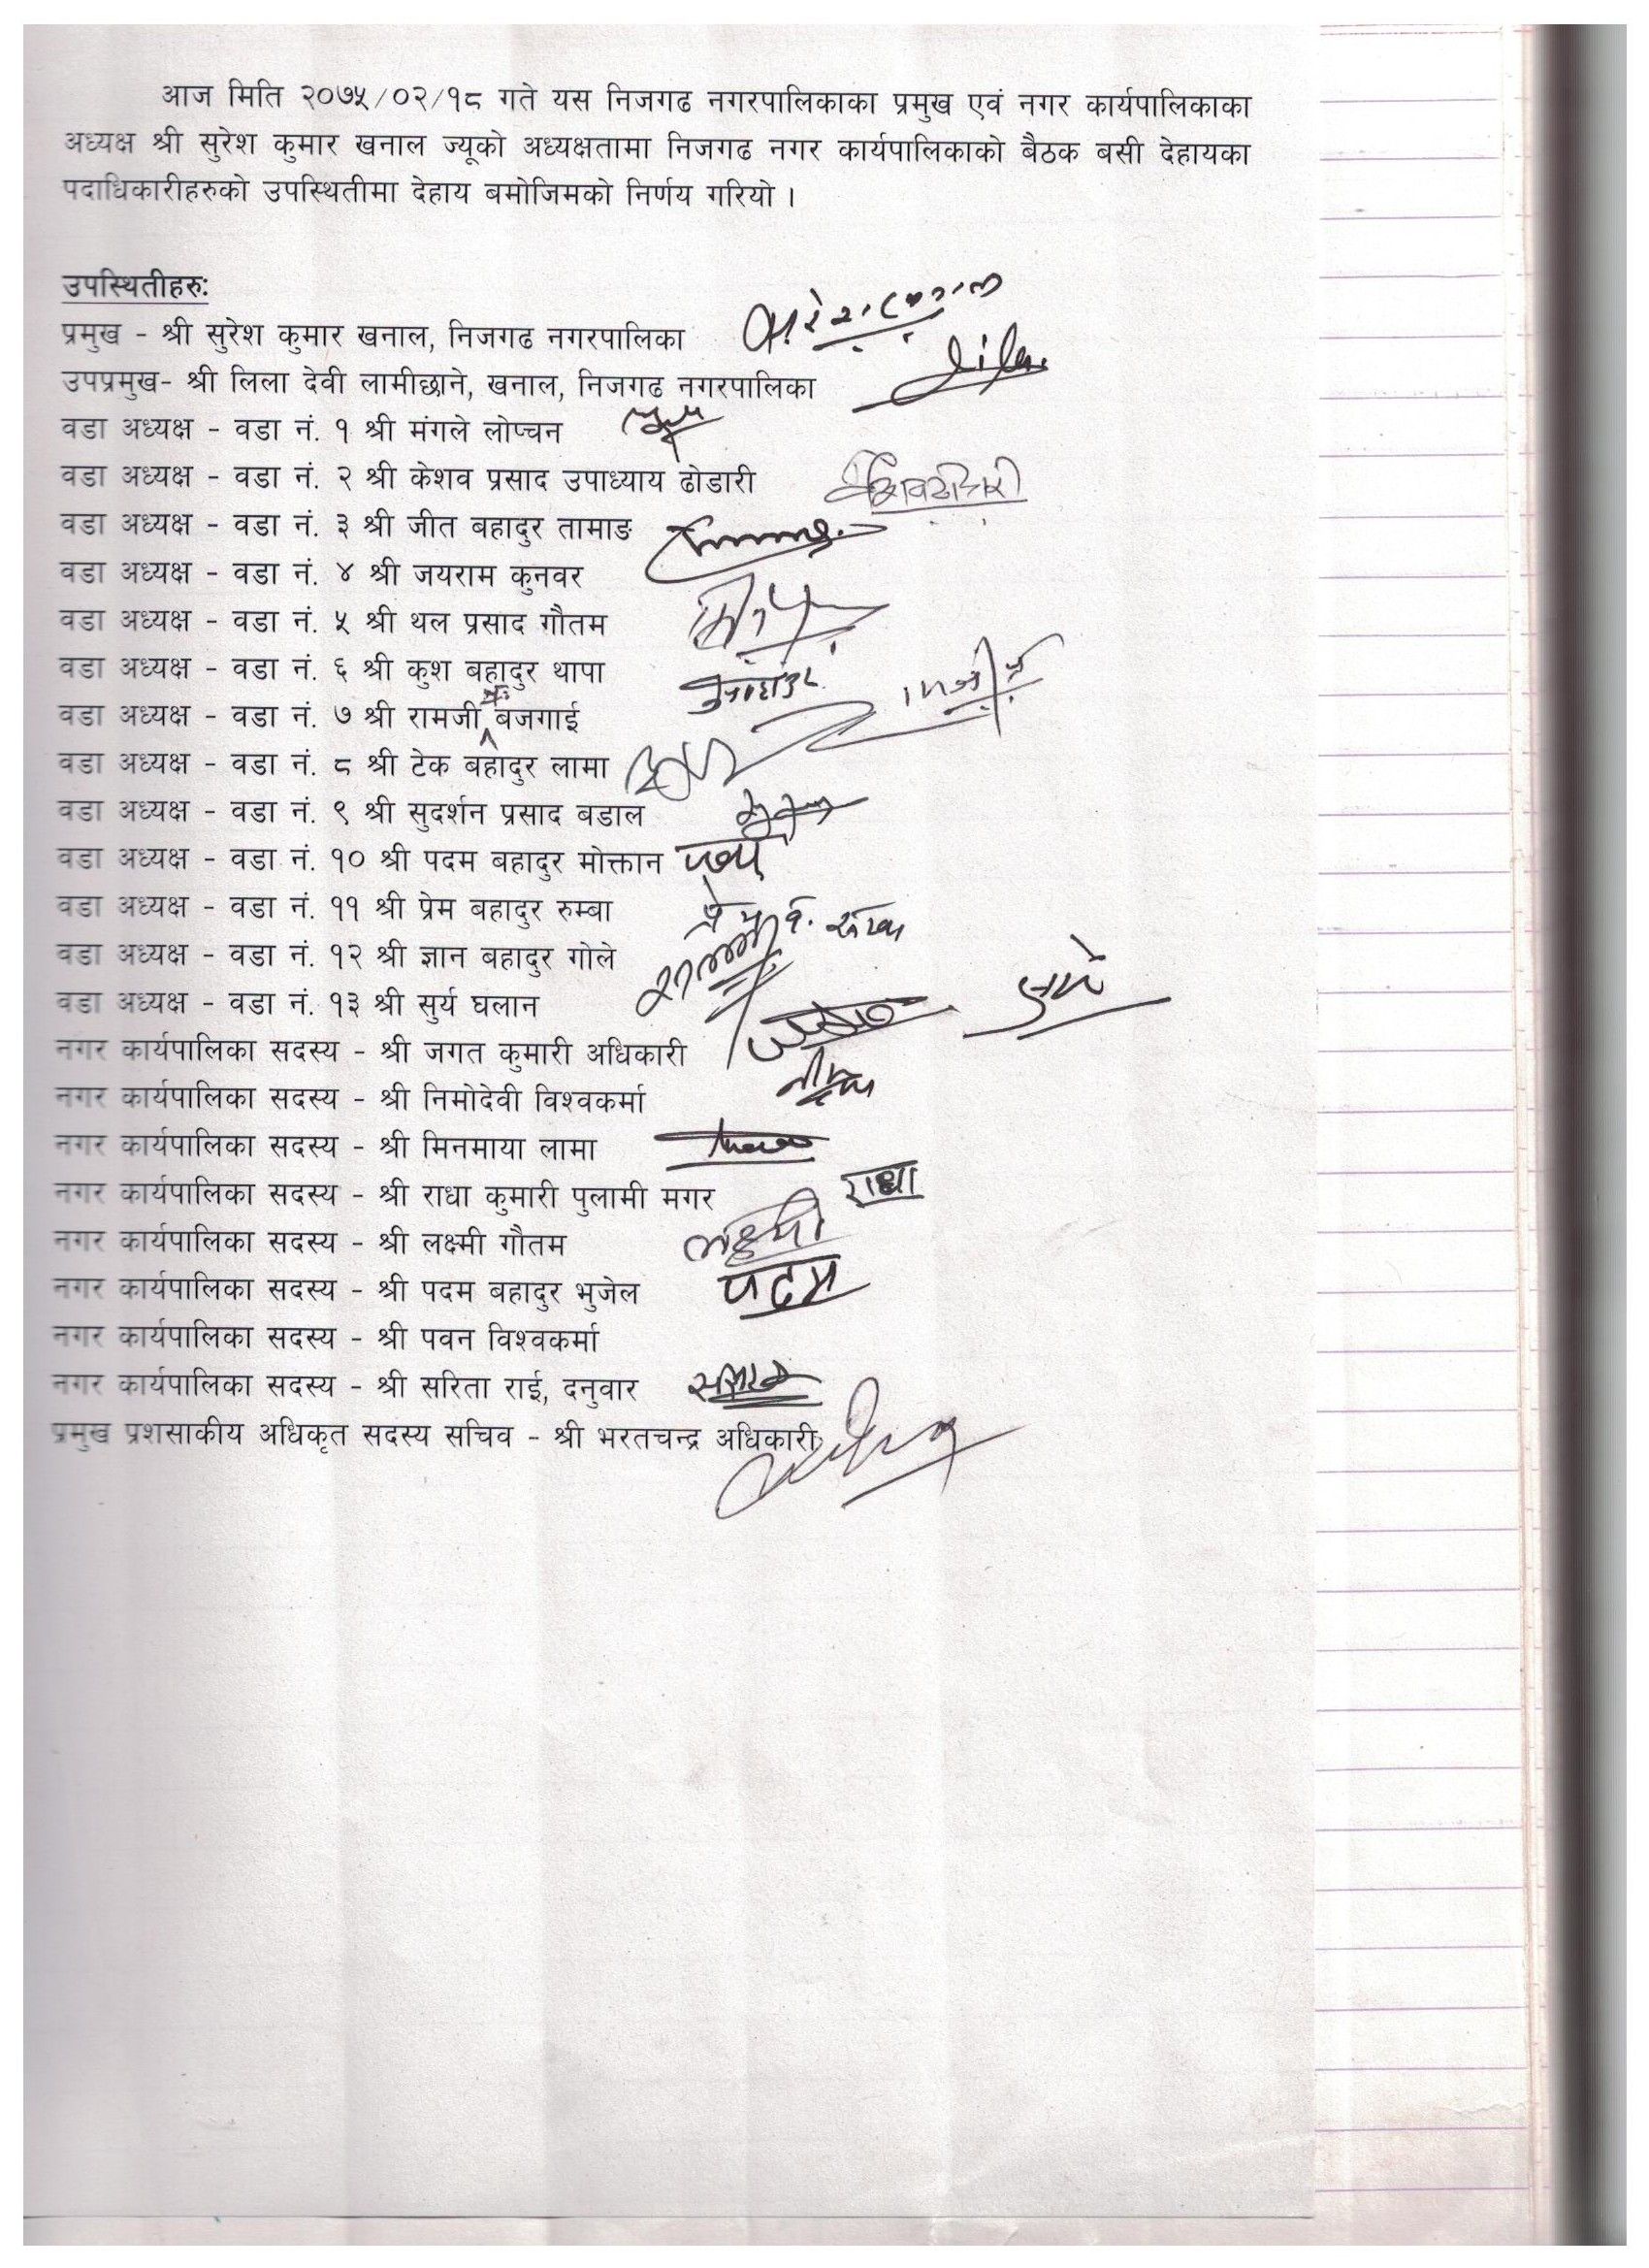 आज मिति २०७५/०२/१८ गते यस निजगढ नगरपालिकाका प्रमुख एवं नगर कार्यपालिकाका
अध्यक्ष श्री सुरेश कुमार खनाल ज्यूको अध्यक्षतामा निजगढ नगर कार्यपालिकाको बैठक बसी देहायका
पदाधिकारीहरुको उपस्थितीमा देहाय बमोजिमको निर्णय गरियो ।
उपस्थितीहरुः
प्रमुख - श्री सुरेश कुमार खनाल, निजगढ नगरपालिका
उपप्रमुख- श्री लिला देवी लामीछाने, खनाल, निजगढ नगरपालिका
वडा अध्यक्ष - वडा नं. १ श्री मंगले लोप्चन
वडा अध्यक्ष - वडा नं. २ श्री केशव प्रसाद उपाध्याय ढोडारी
वडा अध्यक्ष - वडा नं. ३ श्री जीत बहादुर तामाङ
वडा अध्यक्ष - वडा नं. ४ श्री जयराम कुनवर
वडा अध्यक्ष - वडा नं. ५ श्री थल प्रसाद गौतम
वडा अध्यक्ष - वडा नं. ६ श्री कुश बहादुर थापा
वडा अध्यक्ष - वडा नं. ७ श्री रामजी बजगाई
वडा अध्यक्ष - वडा नं. ८ श्री टेक बहादुर लामा
वडा अध्यक्ष - वडा नं. ९ श्री सुदर्शन प्रसाद बडाल
वडा अध्यक्ष - वडा नं. १० श्री पदम बहादुर मोक्तान
वडा अध्यक्ष - वडा नं. ११ श्री प्रेम बहादुर रुम्बा
वडा अध्यक्ष - वडा नं. १२ श्री ज्ञान बहादुर गोले
वडा अध्यक्ष - वडा नं. १३ श्री सुर्य घलान
नगर कार्यपालिका सदस्य - श्री जगत कुमारी अधिकारी
नगर कार्यपालिका सदस्य - श्री निमोदेवी विश्वकर्मा
नगर कार्यपालिका सदस्य - श्री मिनमाया लामा
नगर कार्यपालिका सदस्य - श्री राधा कुमारी पुलामी मगर राधा
नगर कार्यपालिका सदस्य - श्री लक्ष्मी गौतम लक्ष्मी
नगर कार्यपालिका सदस्य - श्री पदम बहादुर भुजेल पदम
नगर कार्यपालिका सदस्य - श्री पवन विश्वकर्मा
नगर कार्यपालिका सदस्य - श्री सरिता राई, दनुवार
प्रमुख प्रशसाकीय अधिकृत सदस्य सचिव - श्री भरतचन्द्र अधिकारी